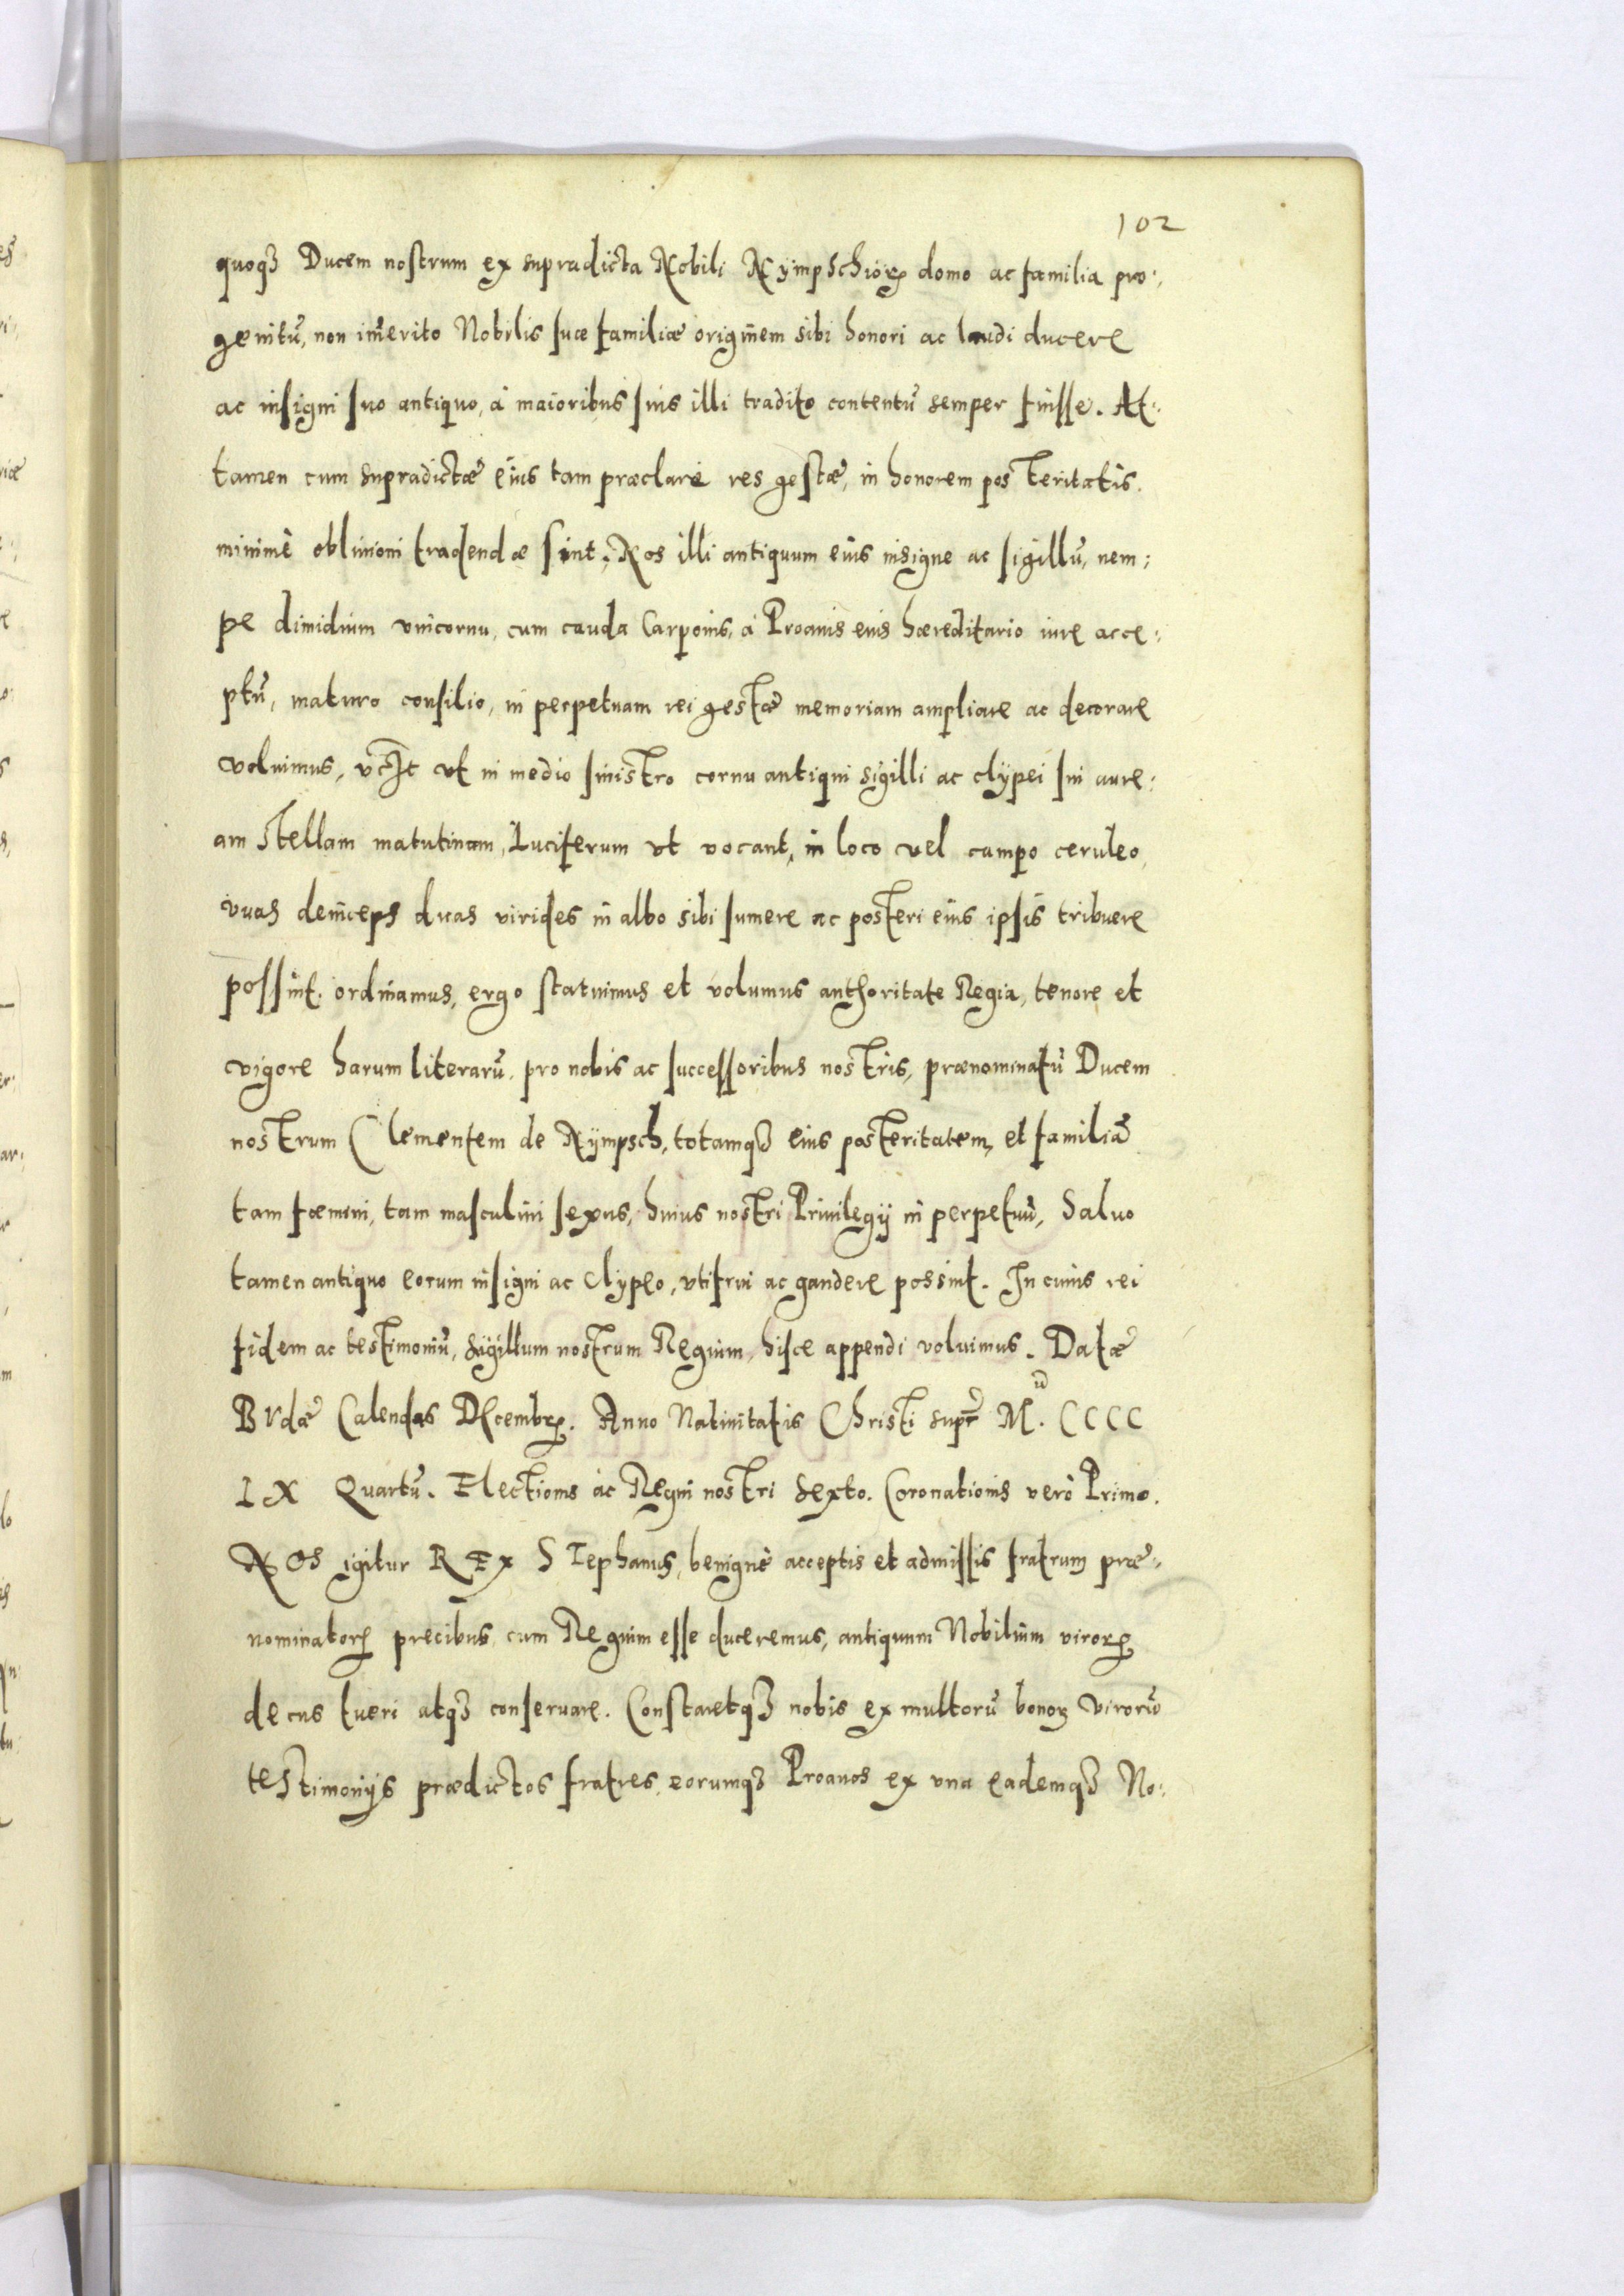 102
quoqꝫ Ducem nostrum ex supradicta Nobili Nÿmpschioꝝ domo ac familia pro:
genitū, non im̄erito Nobilis suæ familiæ originem sibi honori ac laudi ducere
ac insigni suo antiquo, à maioribus suis illi tradito contentū semper fuisse. At:
tamen cum supradictæ eius tam præclarè res gestæ, in honorem posteritatis
minimè obliuioni tradendæ sint, Nos illi antiquum eius insigne ac sigillū, nem:
pe dimidium vnicornu, cum cauda Carpoins, à Proauis euis hæreditario iure acce:
ptū, maturo consilio, in perpetuam rei gestæ memoriam ampliare ac decorare
voluimus, vt in medio sinistro cornu antiqui sigilli ac clÿpei sui aure:
am Stellam matutinam, Luciferum vt vocant, in loco vel campo ceruleo,
vuas deinceps duas virides in albo sibi sumere ac posteri eius ipsis tribuere
possint. ordinamus, ergo statuimus et volumus authoritate Regia, tenore et
vigore harum literarū, pro nobis ac successoribus nostris, prænominatū Ducem
nostrum Clementem de Nÿmpsch, totamqꝫ eius posteritatem, et familiā
tam fœmini, tam masculini sexus, huius nostri Priuilegÿ in perpetuū, Saluo
tamen antiquo eorum insigni ac Clypeo, vti frui ac gaudere possint. In cuius rei
fidem ac testimoniū, sigillum nostrum Regium, hisce appendi voluimus. Datæ
Budæ Calendas Decembꝝ. Anno Natiuitatis Christi supr̄ M. CCCC
LX Quartū. Electionis ac Regni nostri sexto. Coronationis verò Primo.
NOs igitur REx STephanus, benignè acceptis et admissis fratrum præ:
nominatoꝝ precibus, cum Regium esse duceremus, antiquum Nobilium viroꝝ
decus tueri atqꝫ conseruare. Constaretqꝫ nobis ex multorū bonoꝝ virorū
testimonÿs prædictos fratres, eorumqꝫ Proauos ex vna eademqꝫ No: